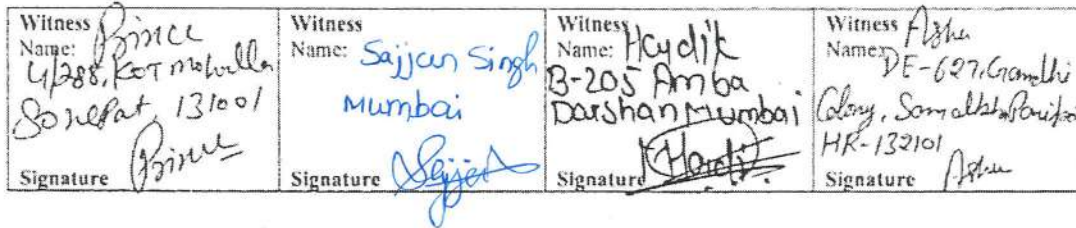 Witness
Name: Prince
4/288, KOT Mohalla
Sonepat, 131001
Signature Prince
Witness
Name: Sajjan Singh
Mumbai
Signature Sajjan
Witness
Name: Hardik
B-205 Amba
Darshan Mumbai
Signature Hardik
Witness
Name: Ashu
DE-627, Gandhi
Colony, Samalkha Panipat
HR-132101
Signature Ashu